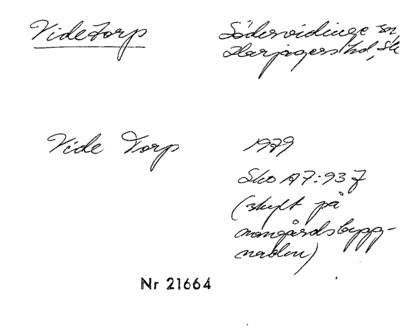 Videtorp
Södervidinge sn,
Harjagers hd, Sk
Vide Torp
1979
Sko A7:93 7
(skylt på
mangårdsbygg-
naden)
Nr 21664